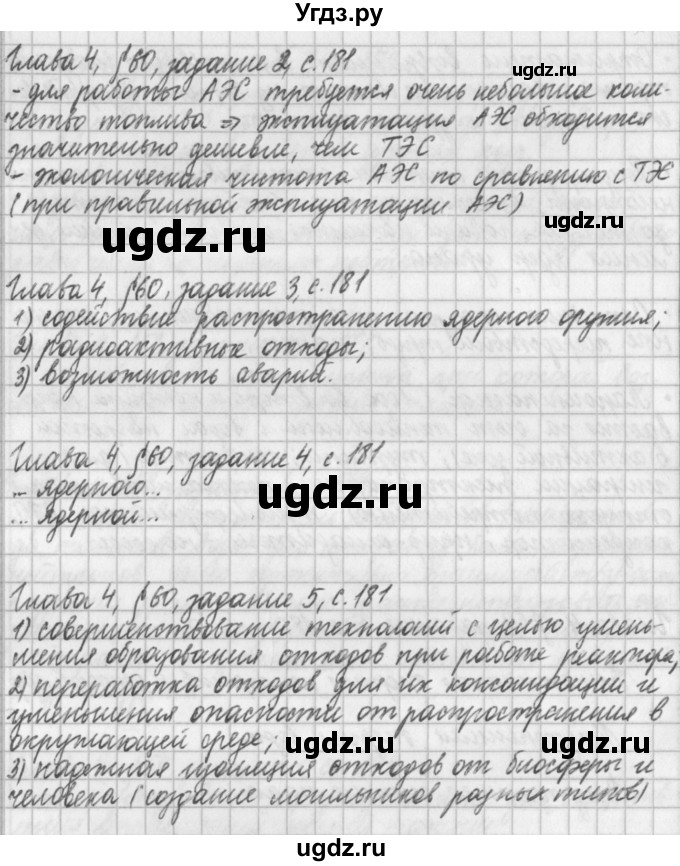 Угдз.ру
Глава 4, §60, задание 2, с.181
- для работы АЭС требуется очень небольшое коли-
чество топлива => эксплуатация АЭС обходится
значительно дешевле, чем ТЭС
- экологическая чистота АЭС по сравнению с ТЭС
(при правильной эксплуатации АЭС)
Глава 4, §60, задание 3, с.181
1) содействие распространению ядерного оружия;
2) радиоактивные отходы;
3) возможность аварий.
Глава 4, §60, задание 4, с.181
... ядерного...
... ядерной...
Глава 4, §60, задание 5, с.181
1) совершенствование технологий с целью умень-
шения образования отходов при работе реактора;
2) переработка отходов для их консолидации и
уменьшения опасности от распространения в
окружающей среде;
3) надежная изоляция отходов от биосферы и
человека (создание могильников разных типов)
ugdz.ru
ugdz.ru
ugdz.ru
ugdz.ru
ugdz.ru
ugdz.ru
ugdz.ru
ugdz.ru